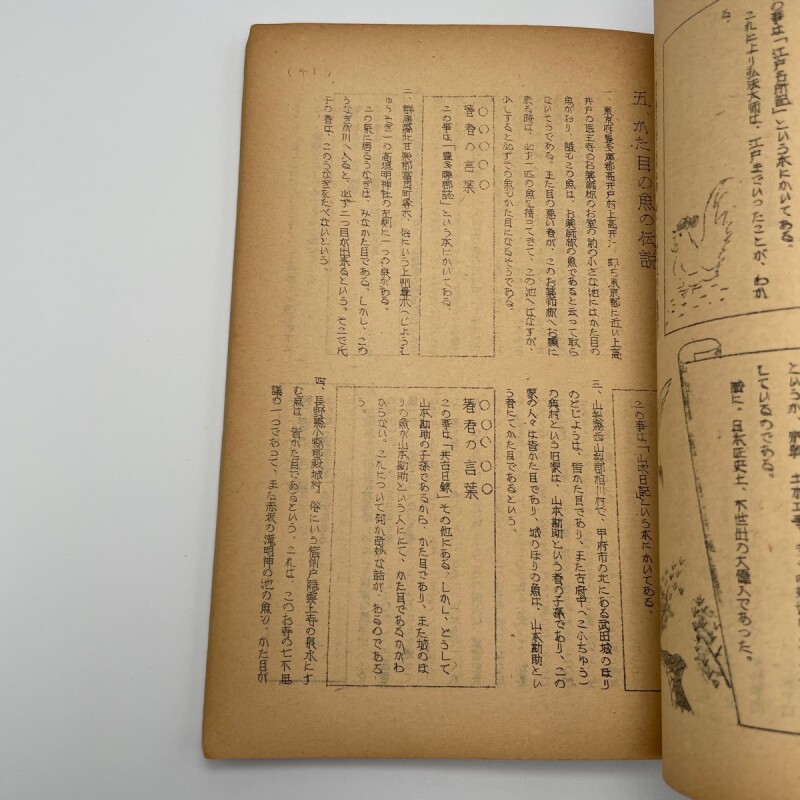 の事は「江戸名所記」という本にかいてある。
これにより弘法大師は、江戸までいったことが、わか
る。
しているのである。
に、日本歴史上、不世出の大偉人であった。
五、かた目の魚の伝説
一、東京府豊多摩郡高井戸村上高井戸、即ち東京都に近い上高
井戸の医王寺のお薬師様のお堂の前の小さな池にはかた目の
魚がおり、誰もこの魚は、お薬師様の魚であると云って取ら
ないそうである。また目の悪い者が、このお薬師様へお願に
来る時は、必ず一匹の魚を持ってきて、この池へはなすが、
少しすると必ずその魚もかた目になるそうである。
○○○○○
著者の言葉
この事は「豊多摩郡誌」という本にかいてある。
二、群馬縣北甘楽郡富岡町曽木、俗にいう上州曽木(じょうし
ゅうそぎ)の高垣明神社の左側に一つの泉がある。
この泉に居るうなぎは、みなかた目である。しかし、この
うなぎが川へ入ると、必ず二つ目が出来るという。そこで氏
子の者は、このうなぎをたべないという。
(41)
この事は「山吹日記」という本にかいてある。
三、山梨縣西山梨郡相川村で、甲府市の北にある武田城のほり
のどじょうは、皆かた目であり、また古府中(こふちゅう)
の奥村という旧家は、山本勘助という者の子孫であり、この
家の人々は皆かた目であり、城のほりの魚は、山本勘助とい
う者にてかた目であるという。
○○○○○
著者の言葉
この事は「共古日録」その他にある。しかし、どうして
山本勘助の子孫であるから、かた目であり、また城のほ
りの魚が山本勘助という人ににて、かた目であるかがわ
からない。これについて何か奇妙な話が、あるのであろ
う。
四、長野縣小縣郡殿城村、俗にいう信州戸隠雲上寺の泉水にす
む魚は、皆かた目であるという。これは、このお寺の七不思
議の一つであって、また赤坂の滝明神の池の魚も、かた目が